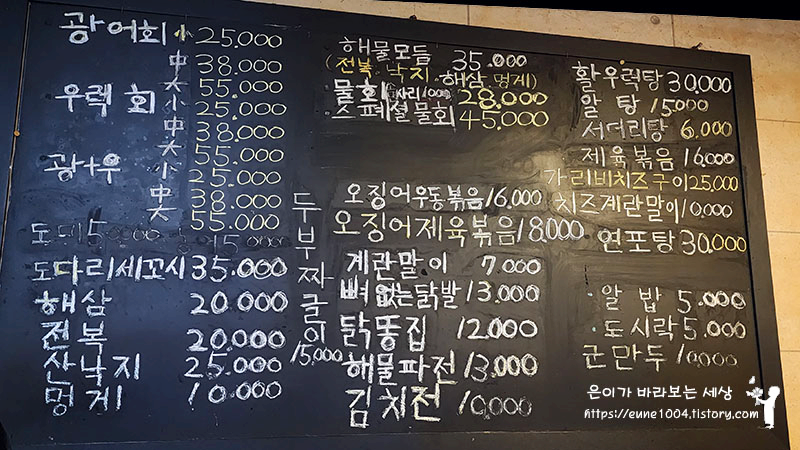 광어회 小 25.000
中 38.000
大 55.000
우럭회 小 25.000
中 38.000
大 55.000
광+우 小 25.000
中 38.000
大 55.000
도다리세꼬시 35.000
해삼 20.000
전복 20.000
산낙지 25.000
멍게 10.000
두부짜글이 15,000
해물모듬 35.000
(전복 낙지 해삼 멍게)
물회 28.000
스페셜물회 45.000
오징어우동볶음 16,000
오징어제육볶음 18,000
계란말이 7.000
뼈없는닭발 13.000
닭똥집 12.000
해물파전 13.000
김치전 10,000
활우럭탕 30.000
알탕 15.000
서더리탕 6.000
제육볶음 16,000
가리비치즈구이 25,000
치즈계란말이 10,000
연포탕 30.000
알밥 5.000
도시락 5.000
군만두 10,000
은이가 바라보는 세상
https://eune1004.tistory.com